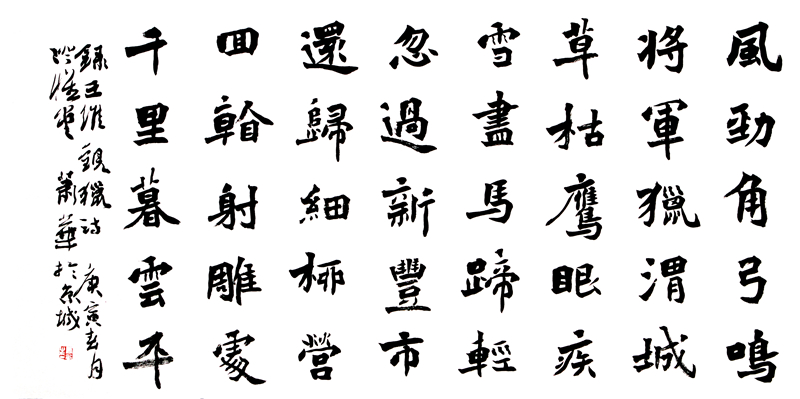 風勁角弓鳴
將軍獵渭城
草枯鷹眼疾
雪盡馬蹄輕
忽過新豐市
還歸細柳營
回看射雕處
千里暮雲平
錄王維觀獵詩 庚寅春月
蕭華於京城